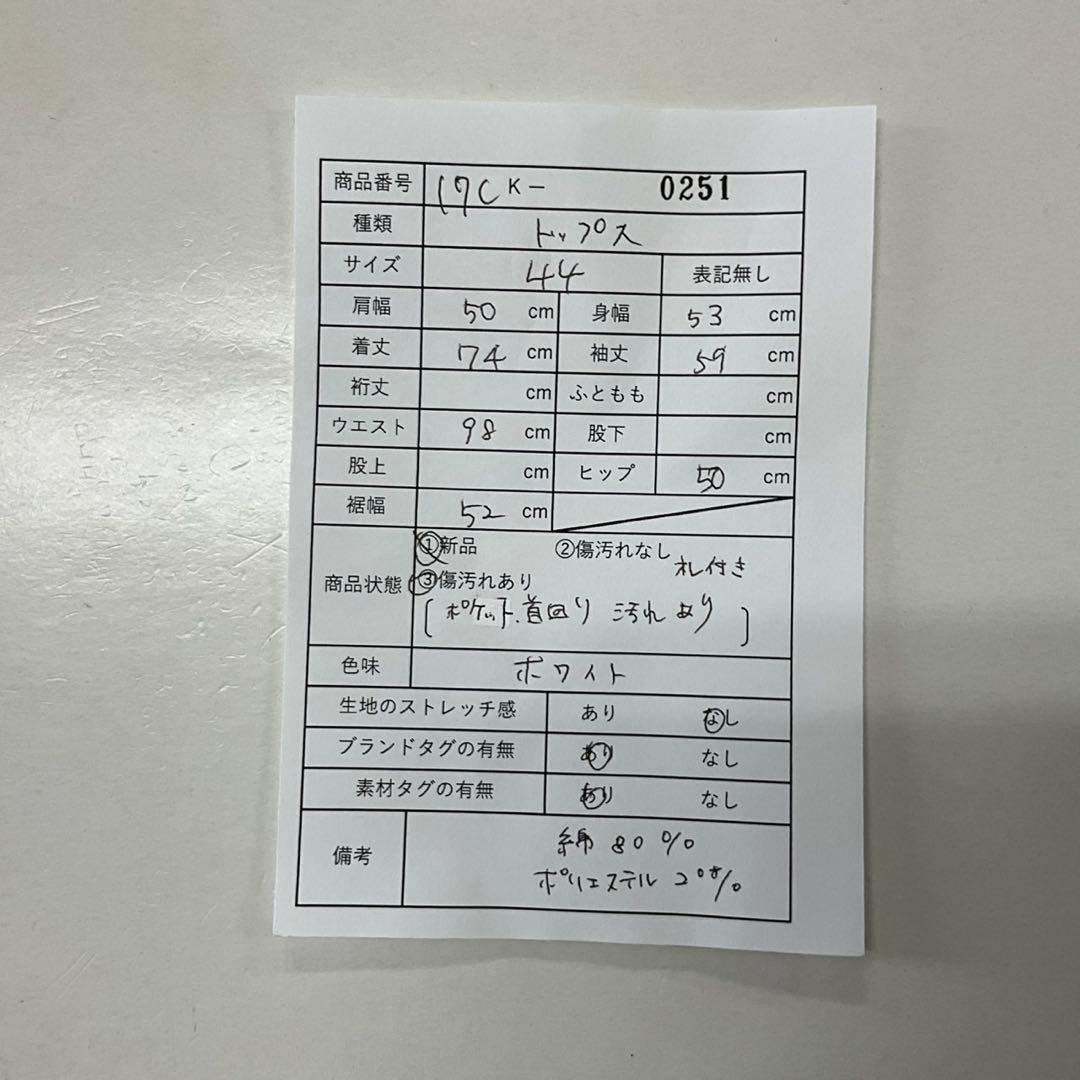 商品番号 17C K- 0251
種類 トップス
サイズ 44 表記無し
肩幅 50 cm 身幅 53 cm
着丈 74 cm 袖丈 59 cm
裄丈 cm ふともも cm
ウエスト 98 cm 股下 cm
股上 cm ヒップ 50 cm
裾幅 52 cm
商品状態 ①新品 ②傷汚れなし 札付き
③傷汚れあり
[ポケット、首回り 汚れあり]
色味 ホワイト
生地のストレッチ感 あり なし
ブランドタグの有無 あり なし
素材タグの有無 あり なし
備考 綿 80%
ポリエステル 20%